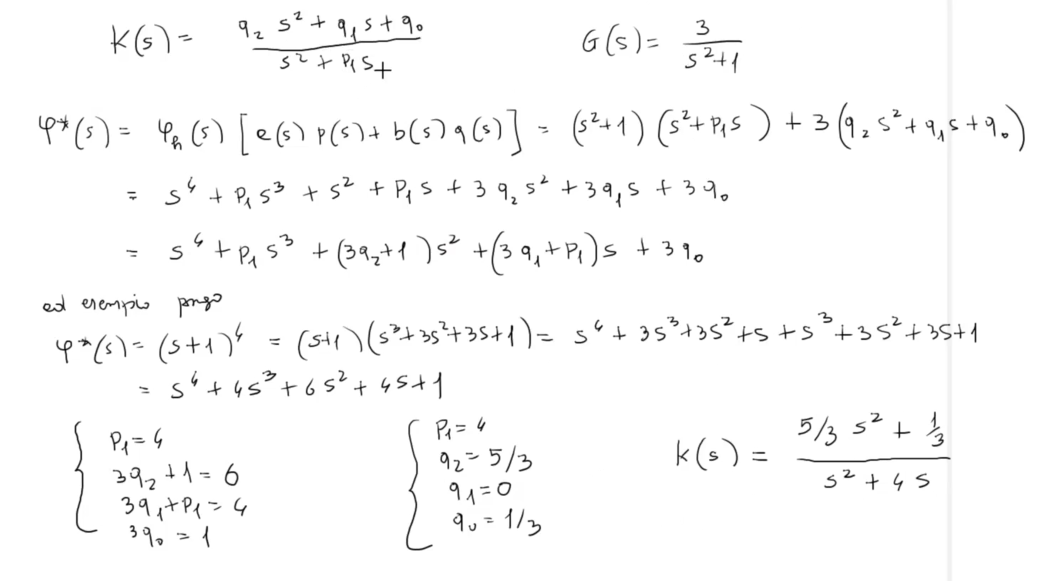 K(s) = (q₂ s² + q₁ s + q₀) / (s² + p₁ s +)    G(s) = 3 / (s² + 1)
φ*(s) = φₕ(s) [e(s) p(s) + b(s) q(s)] = (s²+1) (s² + p₁ s ) + 3 (q₂ s² + q₁ s + q₀)
= s⁴ + p₁ s³ + s² + p₁ s + 3 q₂ s² + 3 q₁ s + 3 q₀
= s⁴ + p₁ s³ + (3q₂+1) s² + (3 q₁ + p₁) s + 3 q₀
ad esempio pongo
φ*(s) = (s+1)⁴ = (s+1) (s³+3s²+3s+1) = s⁴ + 3s³ + 3s² + s + s³ + 3s² + 3s + 1
= s⁴ + 4s³ + 6s² + 4s + 1
{ p₁ = 4
3q₂ + 1 = 6
3q₁ + p₁ = 4
3q₀ = 1
{ p₁ = 4
q₂ = 5/3
q₁ = 0
q₀ = 1/3
K(s) = (5/3 s² + 1/3) / (s² + 4 s)